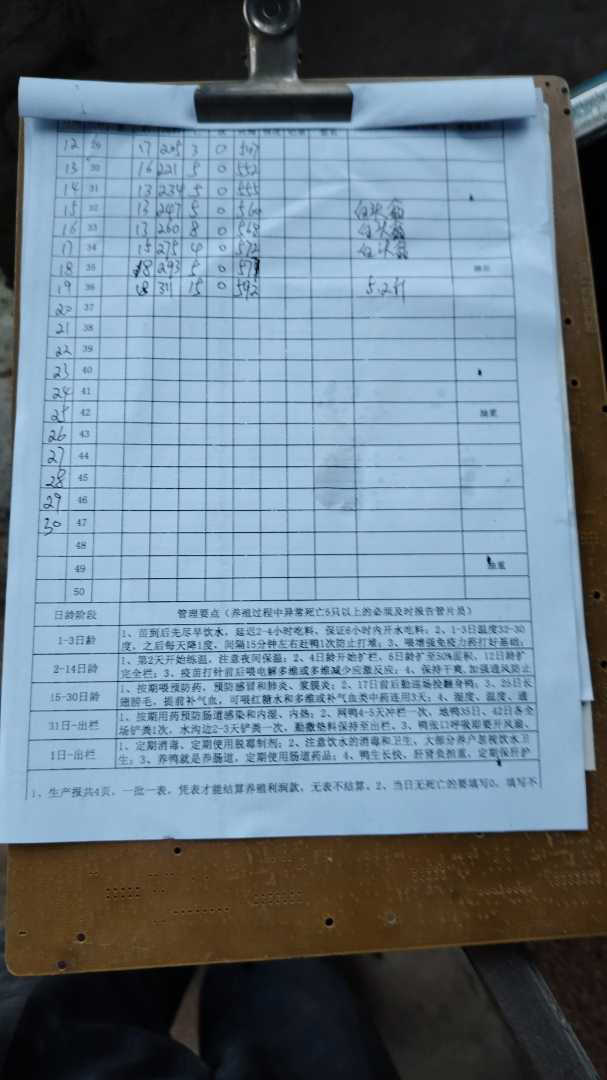 12 29 17 205 3 0 547
13 30 16 221 5 0 552
14 31 13 234 5 0 555
15 32 13 247 5 0 560 白头翁
16 33 13 260 8 0 568 白头翁
17 34 15 275 4 0 572 白头翁
18 35 18 293 5 0 577
19 36 18 311 15 0 592 5.2斤
20 37
21 38
22 39
23 40
24 41
25 42 抽重
26 43
27 44
28 45
29 46
30 47
48
49 抽重
50
日龄阶段 管理要点(养殖过程中异常死亡5只以上的必须及时报告管片员)
1-3日龄 1、苗到后先尽早饮水,延迟2-4小时吃料,保证6小时内开水吃料;2、1-3日温度32-30
度,之后每天降1度,间隔15分钟左右赶鸭1次防止打堆;3、喂增强免疫力药打好基础;
2-14日龄 1、第2天开始练温,注意夜间保温;2、4日龄开始扩栏,6日龄扩至50%面积,12日龄扩
完全栏;3、疫苗打针前后喂电解多维或多维减少应激反应;4、保持干爽,加强通风防止
15-30日龄 1、按期喂预防药,预防感冒和肺炎、浆膜炎;2、17日前后勤巡场捡翻身鸭;3、25日长
翅膀毛,提前补气血,可喂红糖水和多维或补气血类中药连用3天;4、湿度、温度、通
31日-出栏 1、按期用药预防肠道感染和内湿、内热;2、网鸭4-5天冲栏一次、地鸭35日、42日各全
场铲粪1次,水沟边2-3天铲粪一次,勤撒垫料保持至出栏、3、鸭张口呼吸即要开风扇、
1日-出栏 1、定期消毒、定期使用脱霉制剂;2、注意饮水的消毒和卫生,大部分养户忽视饮水卫
生;3、养鸭就是养肠道,定期使用肠道药品;4、鸭生长快、肝肾负担重,定期保肝护
1、生产报共4页,一批一表,凭表才能结算养殖利润款,无表不结算。2、当日无死亡的要填写0,填写不